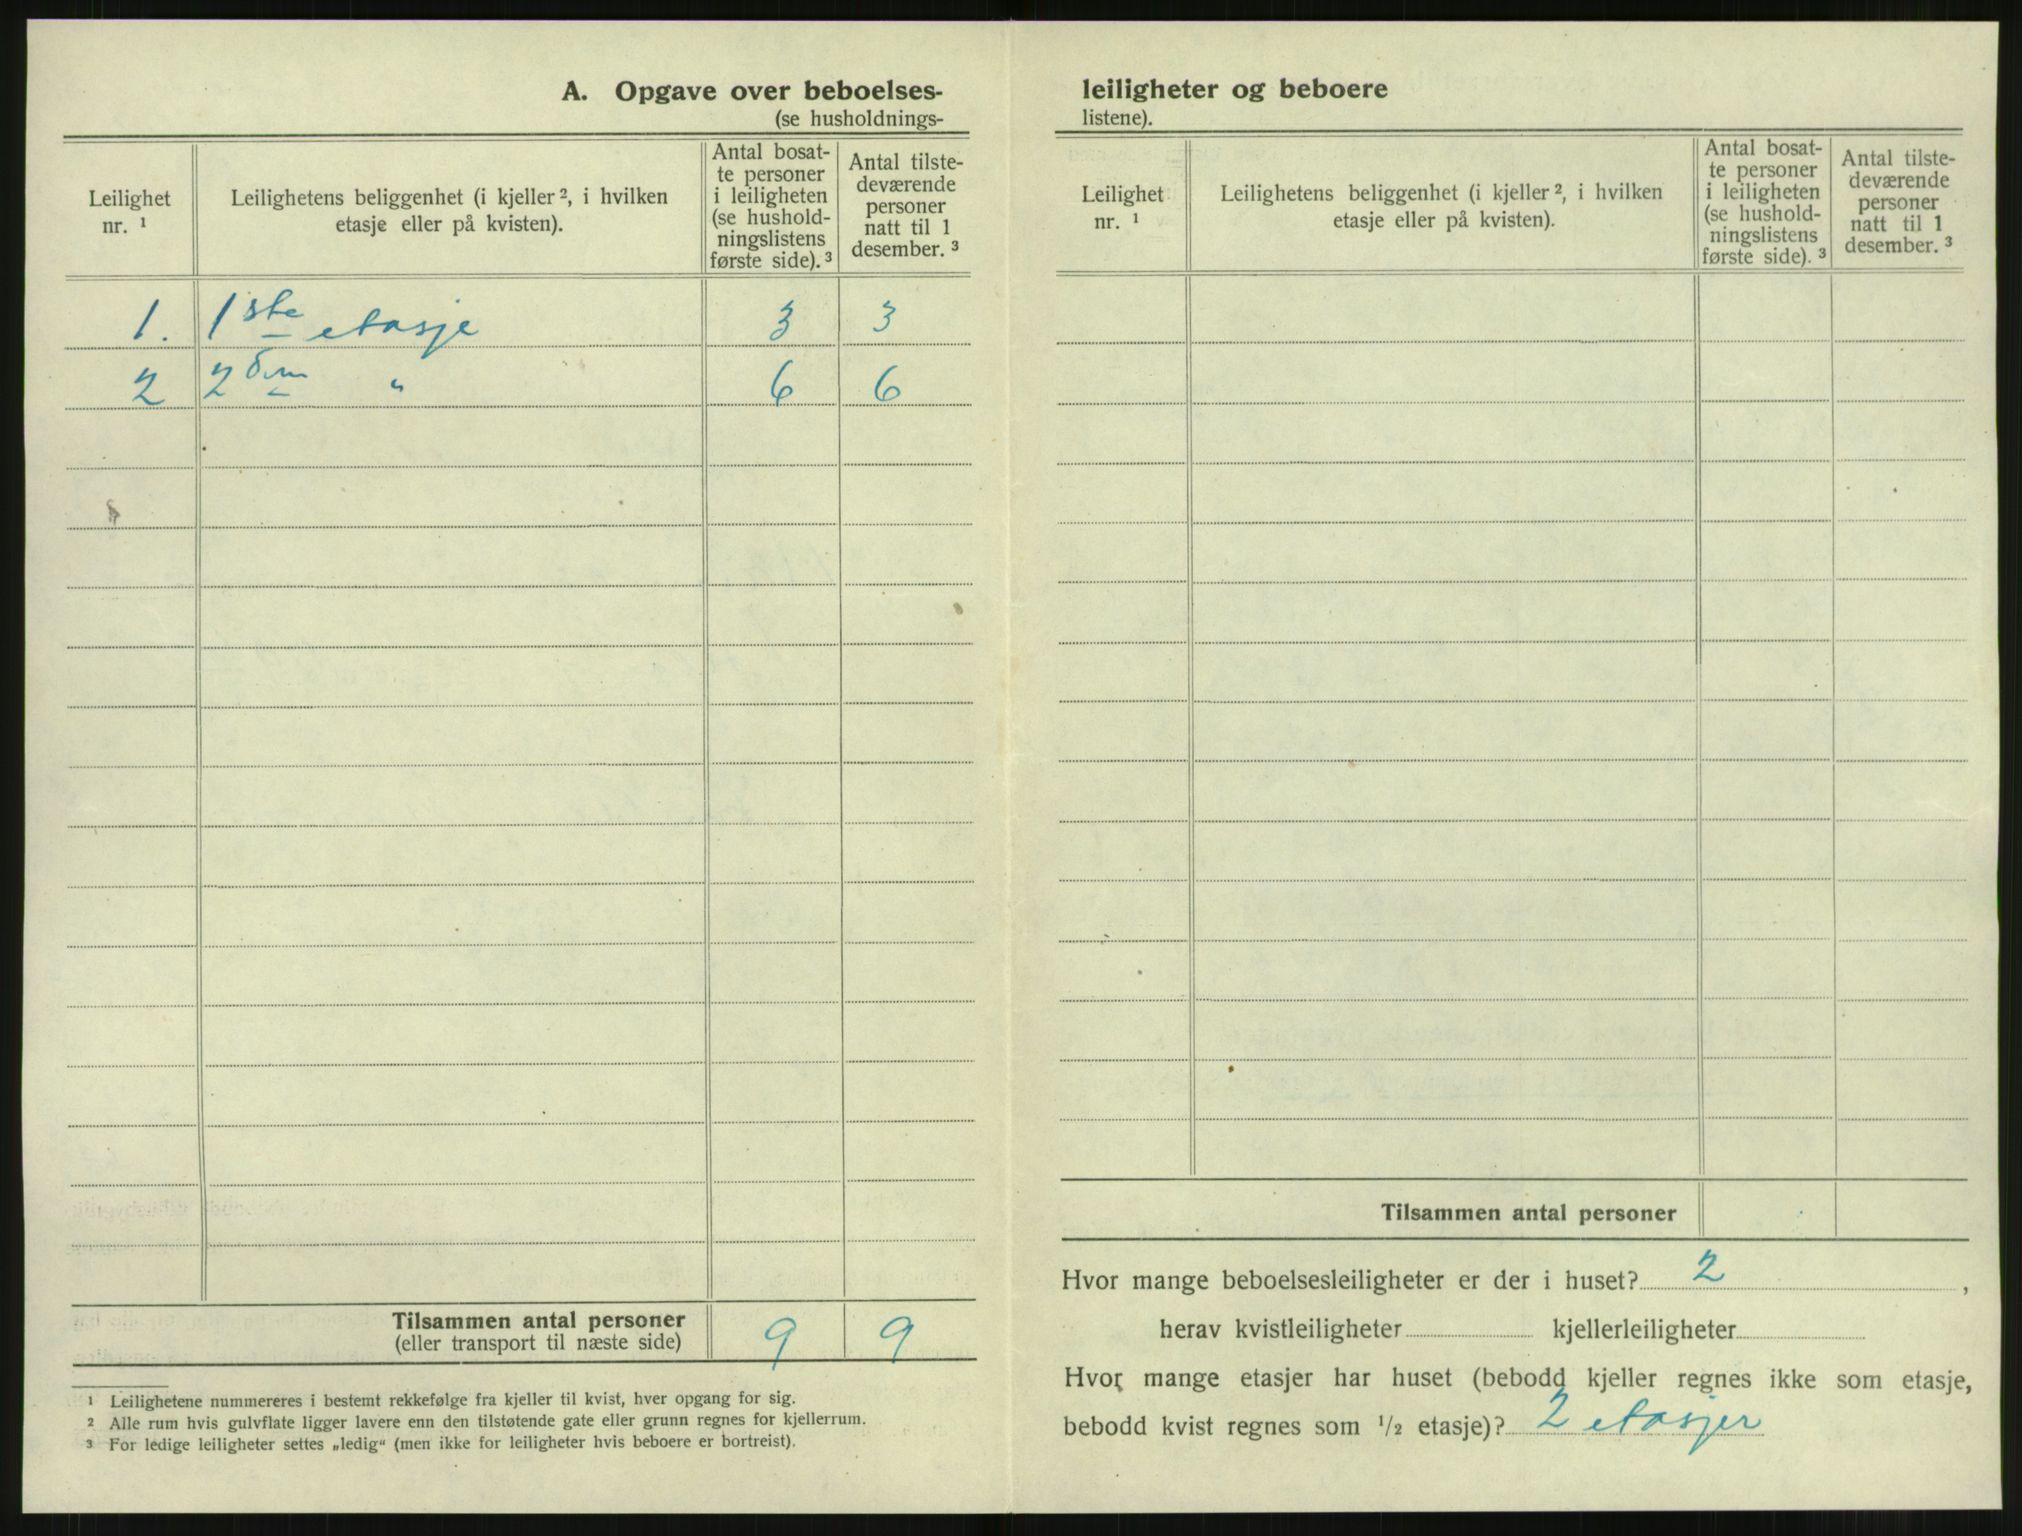 A. Opgave over beboelses-
(se husholdnings-
Leilighet
nr. ¹
Leilighetens beliggenhet (i kjeller ², i hvilken
etasje eller på kvisten).
Antal bosat-
te personer
i leiligheten
(se hushold-
ningslistens
første side). ³
Antal tilste-
deværende
personer
natt til 1
desember. ³
1. 1ste etasje 3 3
2 2den " 6 6
Tilsammen antal personer
(eller transport til næste side)
9 9
¹ Leilighetene nummereres i bestemt rekkefølge fra kjeller til kvist, hver opgang for sig.
² Alle rum hvis gulvflate ligger lavere enn den tilstøtende gate eller grunn regnes for kjellerrum.
³ For ledige leiligheter settes „ledig“ (men ikke for leiligheter hvis beboere er bortreist).
leiligheter og beboere
listene).
Leilighet
nr. ¹
Leilighetens beliggenhet (i kjeller ², i hvilken
etasje eller på kvisten).
Antal bosat-
te personer
i leiligheten
(se hushold-
ningslistens
første side). ³
Antal tilste-
deværende
personer
natt til 1
desember. ³
Tilsammen antal personer
Hvor mange beboelsesleiligheter er der i huset? 2 ,
herav kvistleiligheter kjellerleiligheter
Hvor mange etasjer har huset (bebodd kjeller regnes ikke som etasje,
bebodd kvist regnes som ½ etasje)? 2 etasjer